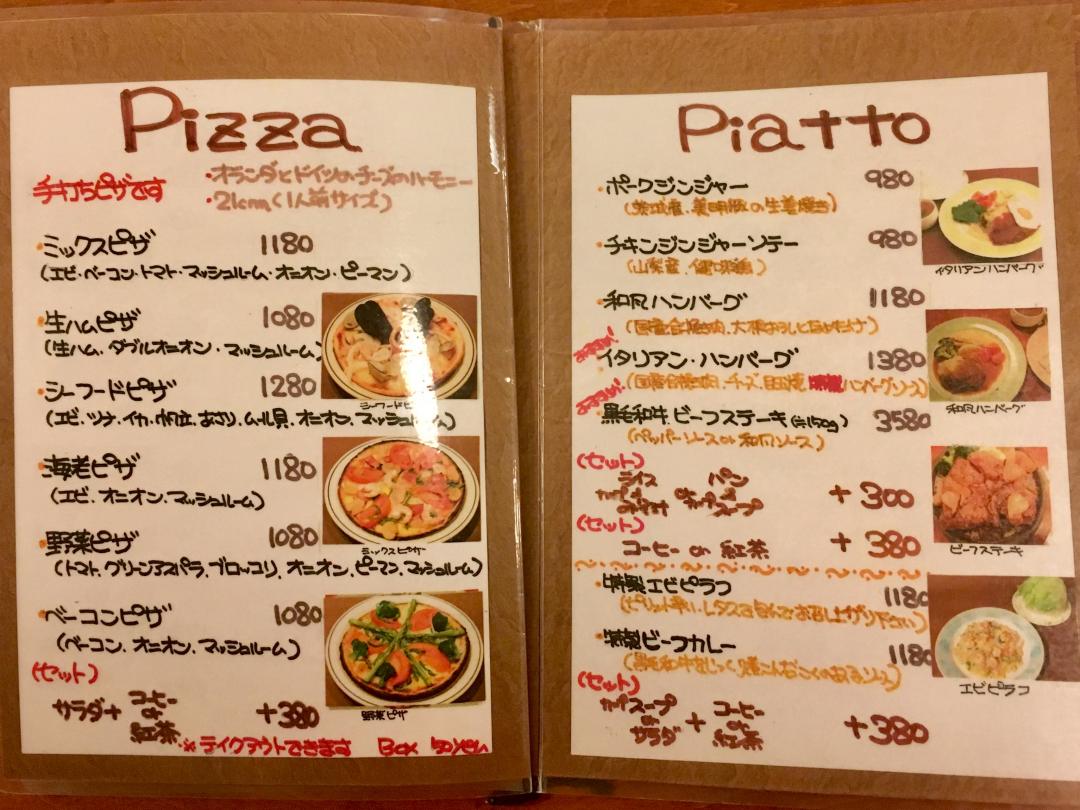 Pizza
手打ちピザです
・オランダとドイツのチーズのハーモニー
・21cm(1人前サイズ)
・ミックスピザ 1180
(エビ・ベーコン・トマト・マッシュルーム・オニオン・ピーマン)
・生ハムピザ 1080
(生ハム、ダブルオニオン・マッシュルーム)
・シーフードピザ 1280
(エビ、ツナ、イカ、あさり、ムール貝、オニオン、マッシュルーム)
シーフードピザ
・海老ピザ 1180
(エビ、オニオン、マッシュルーム)
・野菜ピザ 1080
ミックスピザ
(トマト、グリーンアスパラ、ブロッコリ、オニオン、ピーマン、マッシュルーム)
・ベーコンピザ 1080
(ベーコン、オニオン、マッシュルーム)
(セット)
サラダ+ コーヒー or 紅茶 +380
野菜ピザ
※テイクアウトできます BOX
Piatto
・ポークジンジャー 980
(茨城産、美明豚の生姜焼き)
・チキンジンジャーソテー 980
(山梨産、健味鶏)
イタリアンハンバーグ
・和風ハンバーグ 1180
(国産合挽き肉、大根おろしと)
・イタリアン・ハンバーグ 1380
(国産合挽き肉、チーズ、目玉焼 ハンバーグソース)
・黒毛和牛 ビーフステーキ(約150g) 3580
(ペッパーソース or 和風ソース)
和風ハンバーグ
(セット)
ライス or パン +300
(セット)
コーヒー or 紅茶 +380
ビーフステーキ
・特製エビピラフ 1180
(ピリット辛い、レタスで包んでお召し上がり下さい)
・特製ビーフカレー 1180
(セット)
スープ or サラダ + コーヒー or 紅茶 +380
エビピラフ